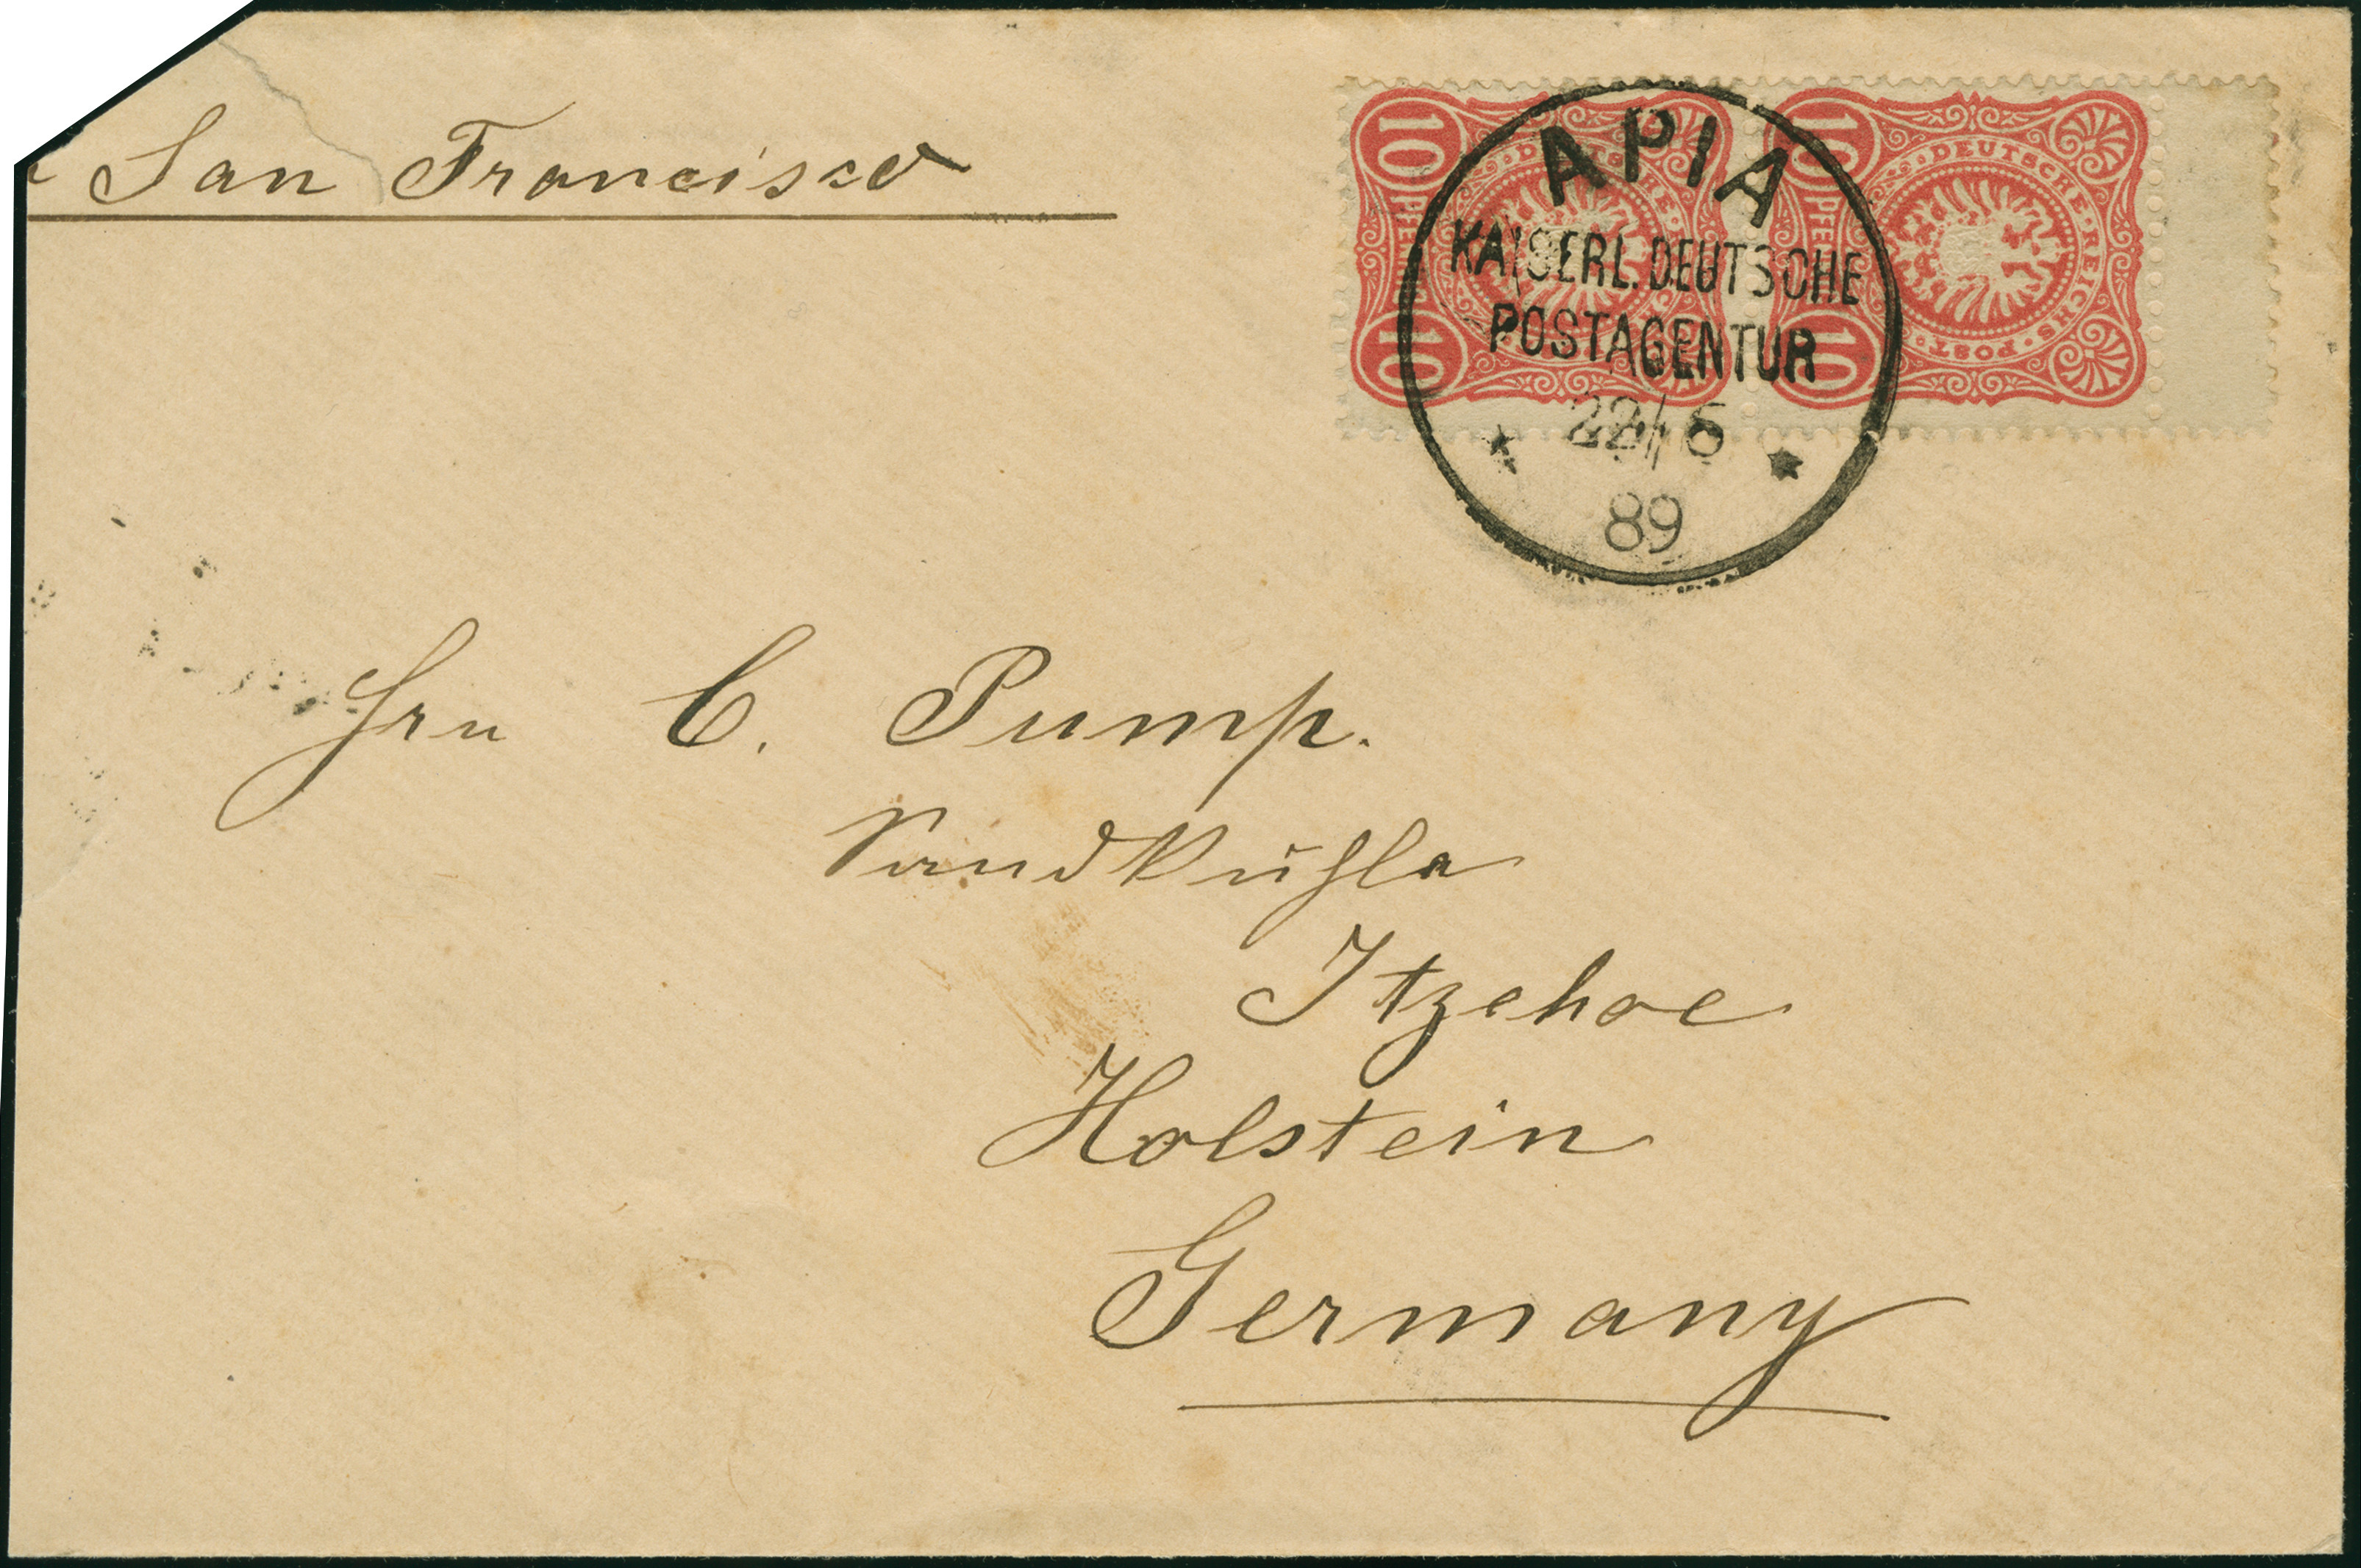 San Francisco
10 PFENNIG 10
DEUTSCHE REICHS POST
10 PFENNIG 10
DEUTSCHE REICHS POST
APIA
KAISERL. DEUTSCHE
POSTAGENTUR
22/6
89
Hrn C. Pump.
Sandkuhle
Itzehoe
Holstein
Germany